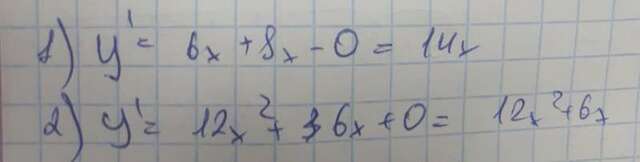 1) y' = 6x + 8x - 0 = 14x
2) y' = 12x² + 6x + 0 = 12x² + 6x